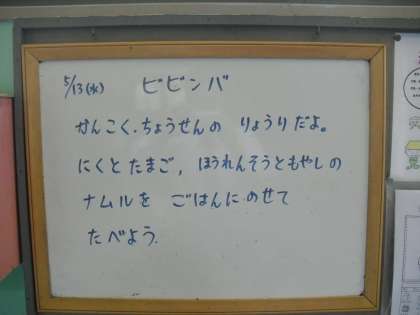 5/13(水) ビビンバ
かんこく・ちょうせんの りょうりだよ。
にくとたまご, ほうれんそうともやしの
ナムルを ごはんにのせて
たべよう.